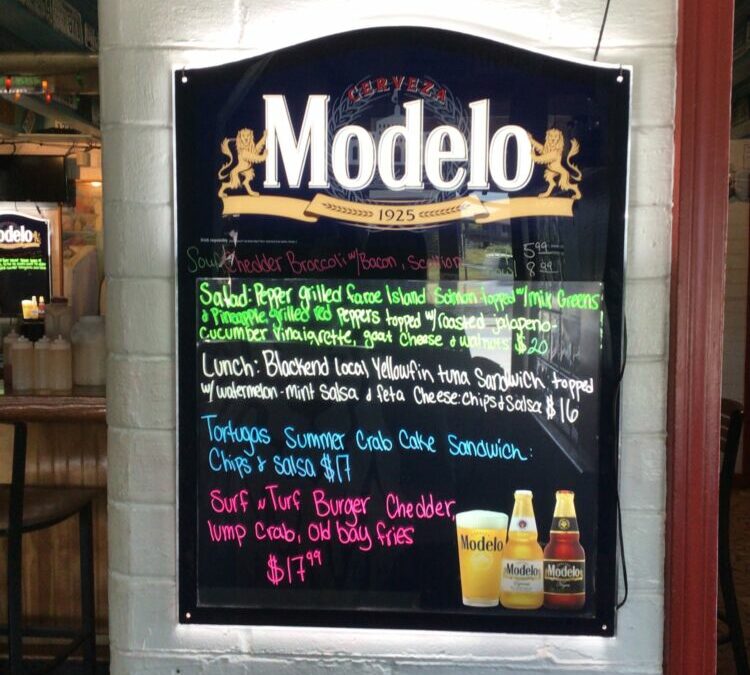 CERVEZA
Modelo
1925
Soup Chedder Broccoli w/Bacon, Scallion 5.99
8.99
Salad: Pepper grilled faroe Island Salmon topped w/mix Greens
& Pineapple, grilled red peppers topped w/roasted jalapeno-
cucumber vinaigrette, goat cheese & walnuts $20
Lunch: Blackend Local Yellowfin tuna Sandwich topped
w/watermelon-mint Salsa & feta Cheese: chips & Salsa $16
Tortugas Summer Crab Cake Sandwich:
Chips & salsa $17
Surf n Turf Burger Chedder,
lump crab, old bay fries
$17.99
Modelo
Modelo
Modelo
delo